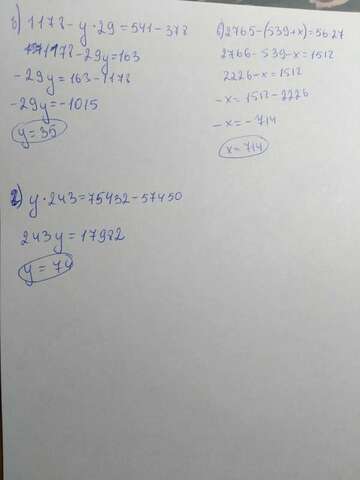 б) 1178 - y · 29 = 541 - 378
1178 - 29y = 163
- 29y = 163 - 1178
- 29y = - 1015
y = 35
в) 2765 - (539 + x) = 56·27
2766 - 539 - x = 1512
2226 - x = 1512
- x = 1512 - 2226
- x = - 714
x = 714
г) y · 243 = 75432 - 57450
243y = 17982
y = 74